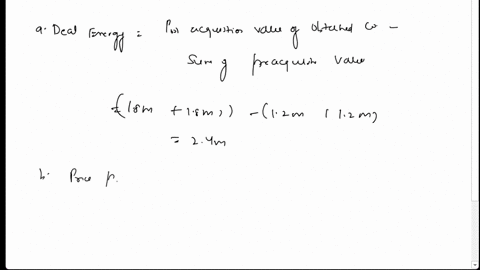 a. Deal Energy = Pos acquisition value of obtained co -
Sum of preacquisition value
= (18m + 1.8m)) - (1.2m + 1.2m)
= 2.4m
b. Price p.